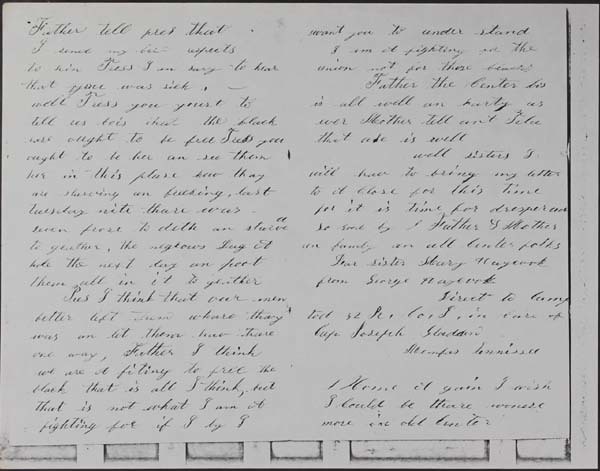 Father tell pres that
I send my bes respects
to him Press I am sorry to hear
that you was sick.
well Press you youst to
tell us bois that the black
was ought to be free Press you
ought to be her an see them
her in this plase how thay
are starving an freezing, last
tuesday nite thare was
seven froze to deth an starve
to geather, the negrows dug a
hole the next day an poot
them all in it to geither
Pres I think that over men
better left them whare thay
was an let them have thare
one way, Father I think
we are a fiting to free the
black that is all I think, but
that is not what I am a
fighting for if I dy I
want you to under stand
I am a fighting for the
union not for those blacks
Father the Center bois
is all well an harty as
ever Mother tell ant
that ade is well
well sisters I
will have to bring my letter
to a close for this time
for it is time for
so good by Father & Mother
an family an all Center folks
Dear sister Mary Naycook
from George Naycook
Direct to Camp
32 Co I, in care of
Cap Joseph Gladden
Memphis Tennissee
Home a gain I wish
I could be thare wonse
more in old Center